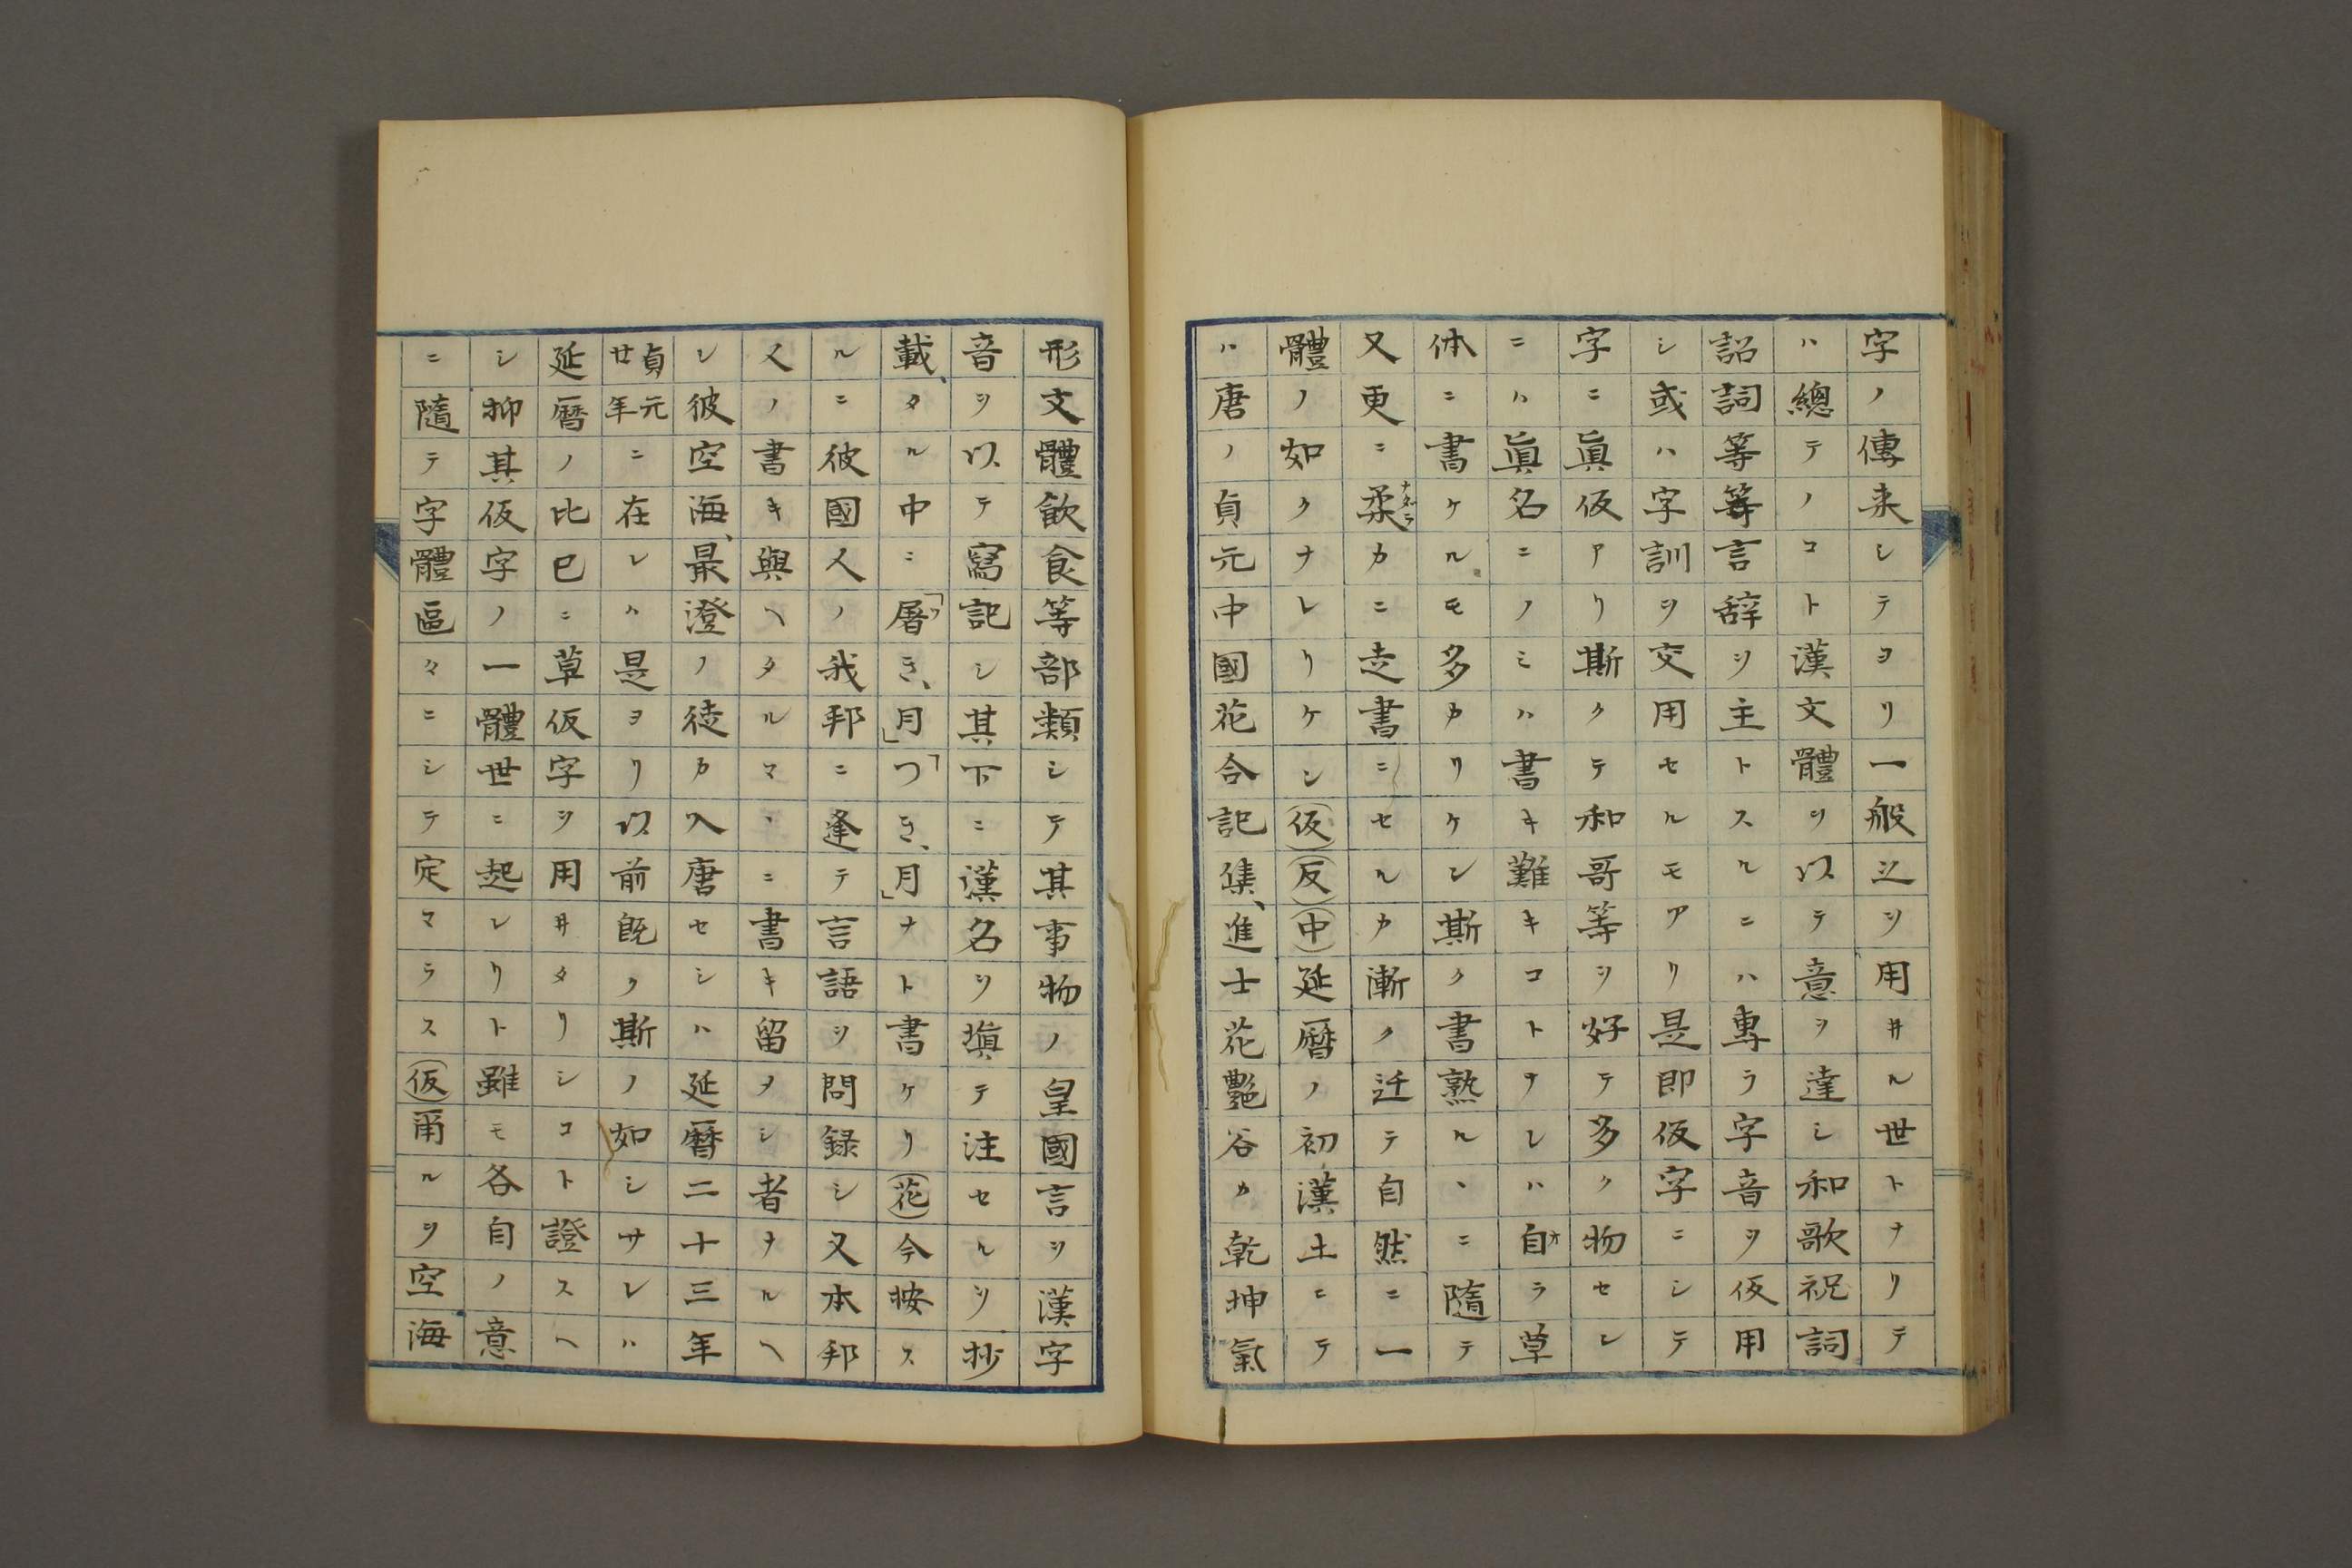 字ノ傳来シテヨリ一般之ヲ用ヰル世トナリテ
ハ總テノコト漢文體ヲ以テ意ヲ達シ和歌祝詞
詔詞等等言辞ヲ主トスルニハ專ラ字音ヲ仮用
シ或ハ字訓ヲ交用セルモアリ是即仮字ニシテ
字ニ眞仮アリ斯クテ和哥等ヲ好テ多ク物セレ
ニハ眞名ニノミハ書キ難キコトナレハ自オラ草
体ニ書ケルモ多カリケレ斯ク書熟ルヽニ隨テ
又更ニ柔ナダラカニ走書ニセルカ漸ク迁テ自然ニ一
體ノ如クナレリケン(仮)(反)(中)延暦ノ初漢土ニテ
ハ唐ノ貞元中國花合記集、進士花艶谷カ乾坤氣
形文體飲食等部類シテ其事物ノ皇國言ヲ漢字
音ヲ以テ寫記シ其下ニ漢名ヲ塡テ注セルヲ抄
載、タル中ニ「屠ツき、月」「つき、月」ナト書ケリ(花)今按ス
ルニ彼國人ノ我邦ニ逢テ言語ヲ問録シ又本邦
人ノ書キ與ヘタルマヽニ書キ留ヲシ者ナルヘ
シ彼空海、最澄ノ徒カ入唐セシハ延暦二十三年
貞元廿年ニ在レハ是ヨリ以前既ク斯ノ如シサレハ
延暦ノ比已ニ草仮字ヲ用ヰタリシコト證スヘ
シ抑其仮字ノ一體世ニ起レリト雖モ各自ノ意
ニ隨テ字體區々ニシテ定マラス(仮)甬ルヲ空海